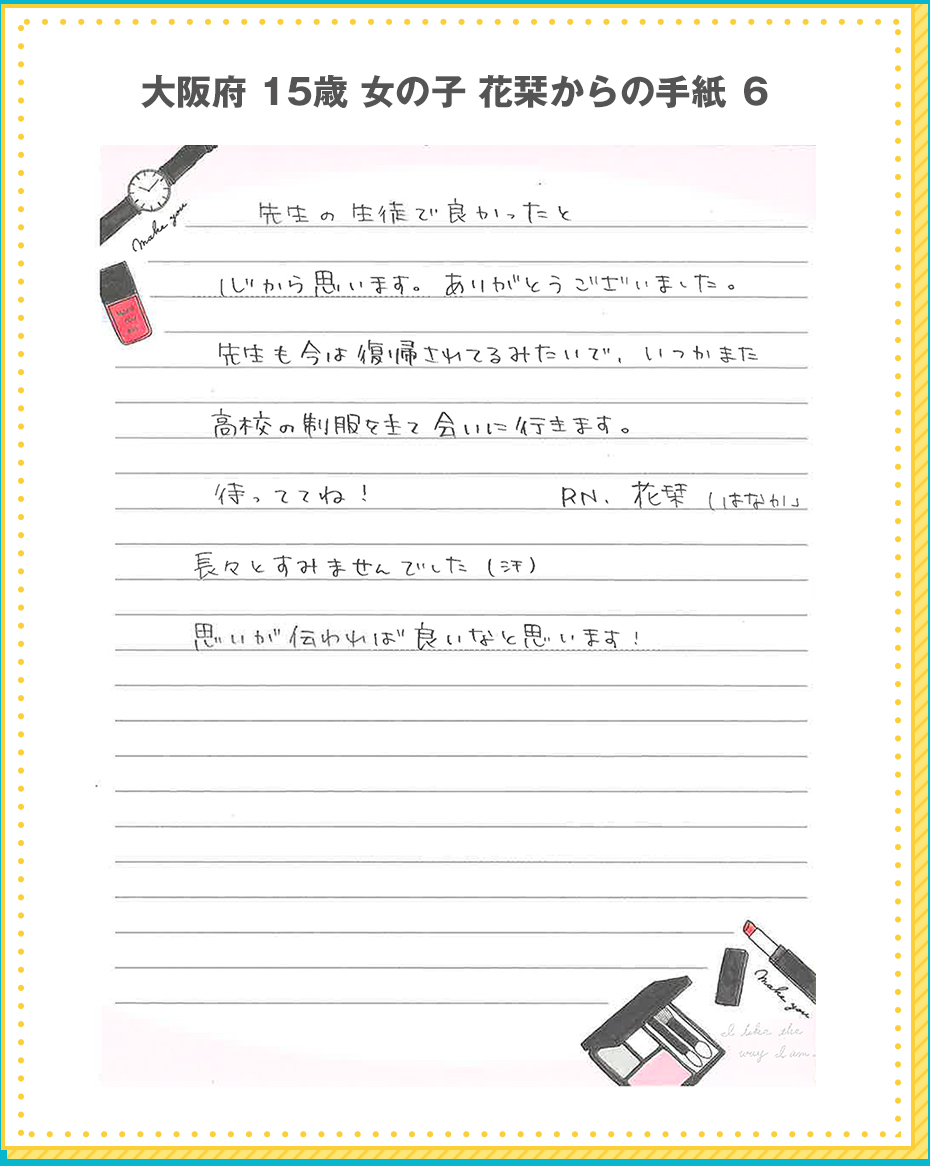 大阪府 15歳 女の子 花栞からの手紙 6
make you
先生の生徒で良かったと
心から思います。ありがとうございました。
先生も今は復帰されてるみたいで、いつかまた
高校の制服を主て会いに行きます。
待っててね！
RN、花栞（はなか）
長々とすみませんでした（汗）
思いが伝われば良いなと思います！
make you
I like the
way I am.